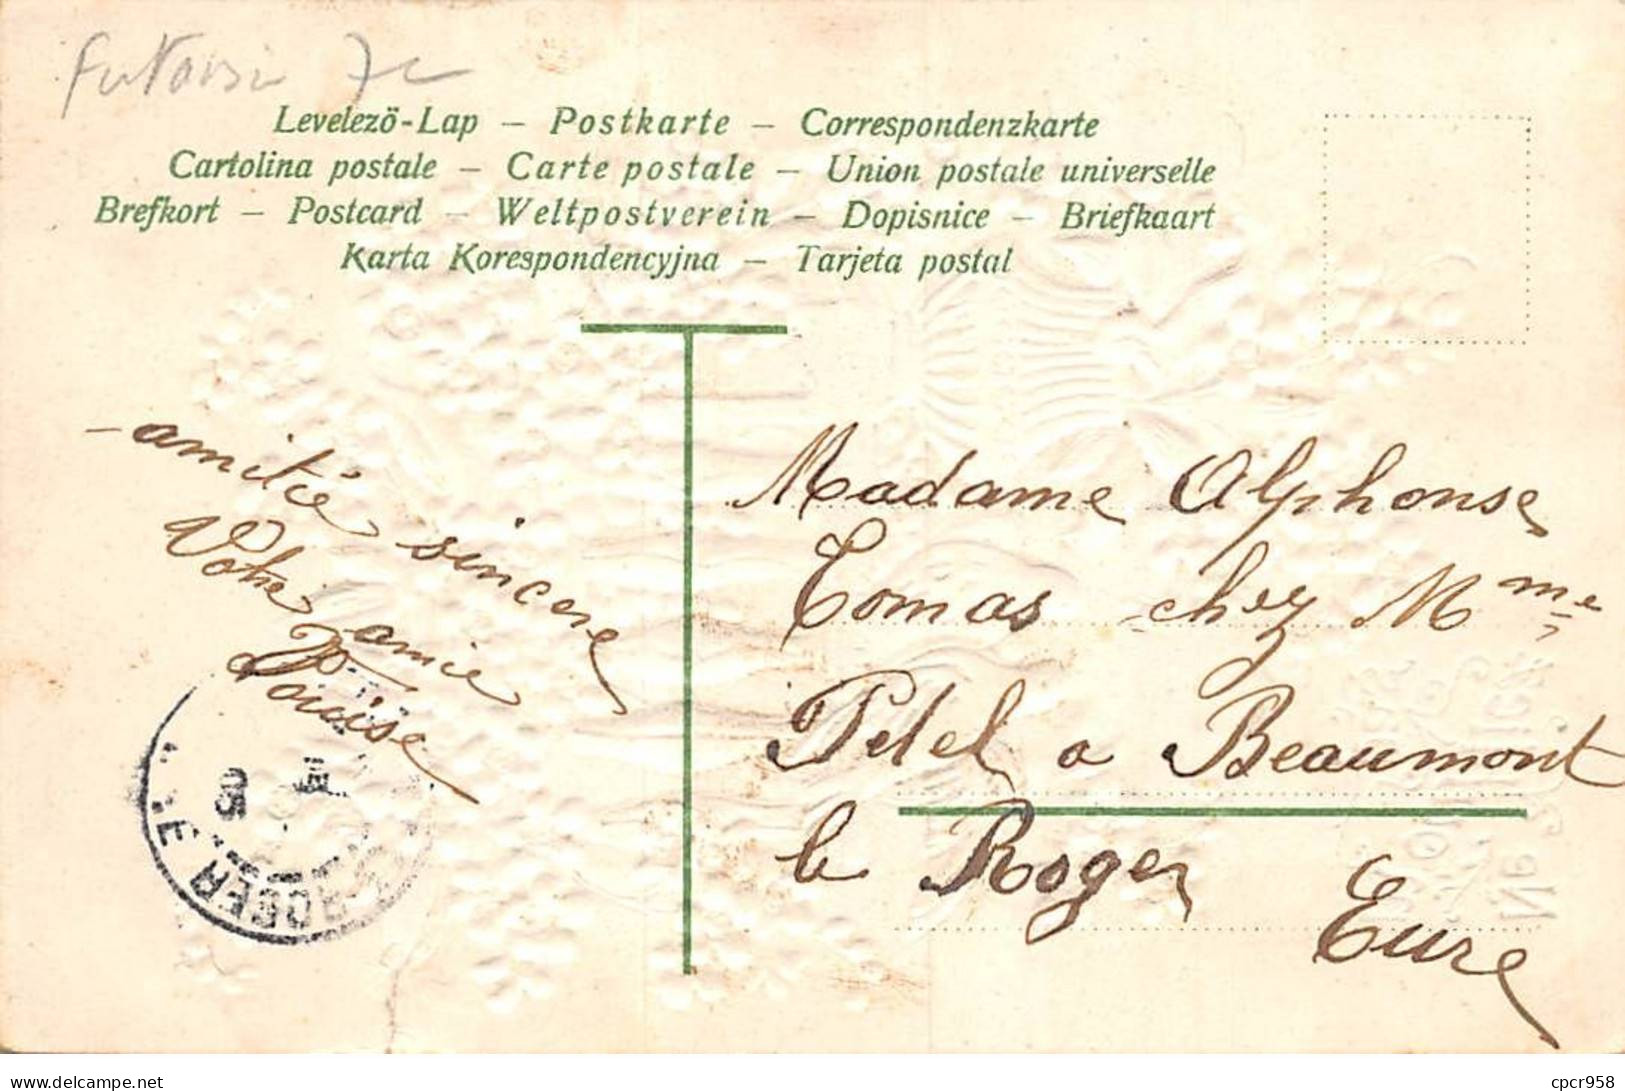 Levelező-Lap – Postkarte – Correspondenzkarte
Cartolina postale – Carte postale – Union postale universelle
Brefkort – Postcard – Weltpostverein – Dopisnice – Briefkaart
Karta Korespondencyjna – Tarjeta postal
- amitié sincere
Votre amie
Louise
Madame Alphonse
Tomas chez Mme
Petel a Beaumont
le Roger
Eure
05
ROGER
www.delcampe.net
cpcr958